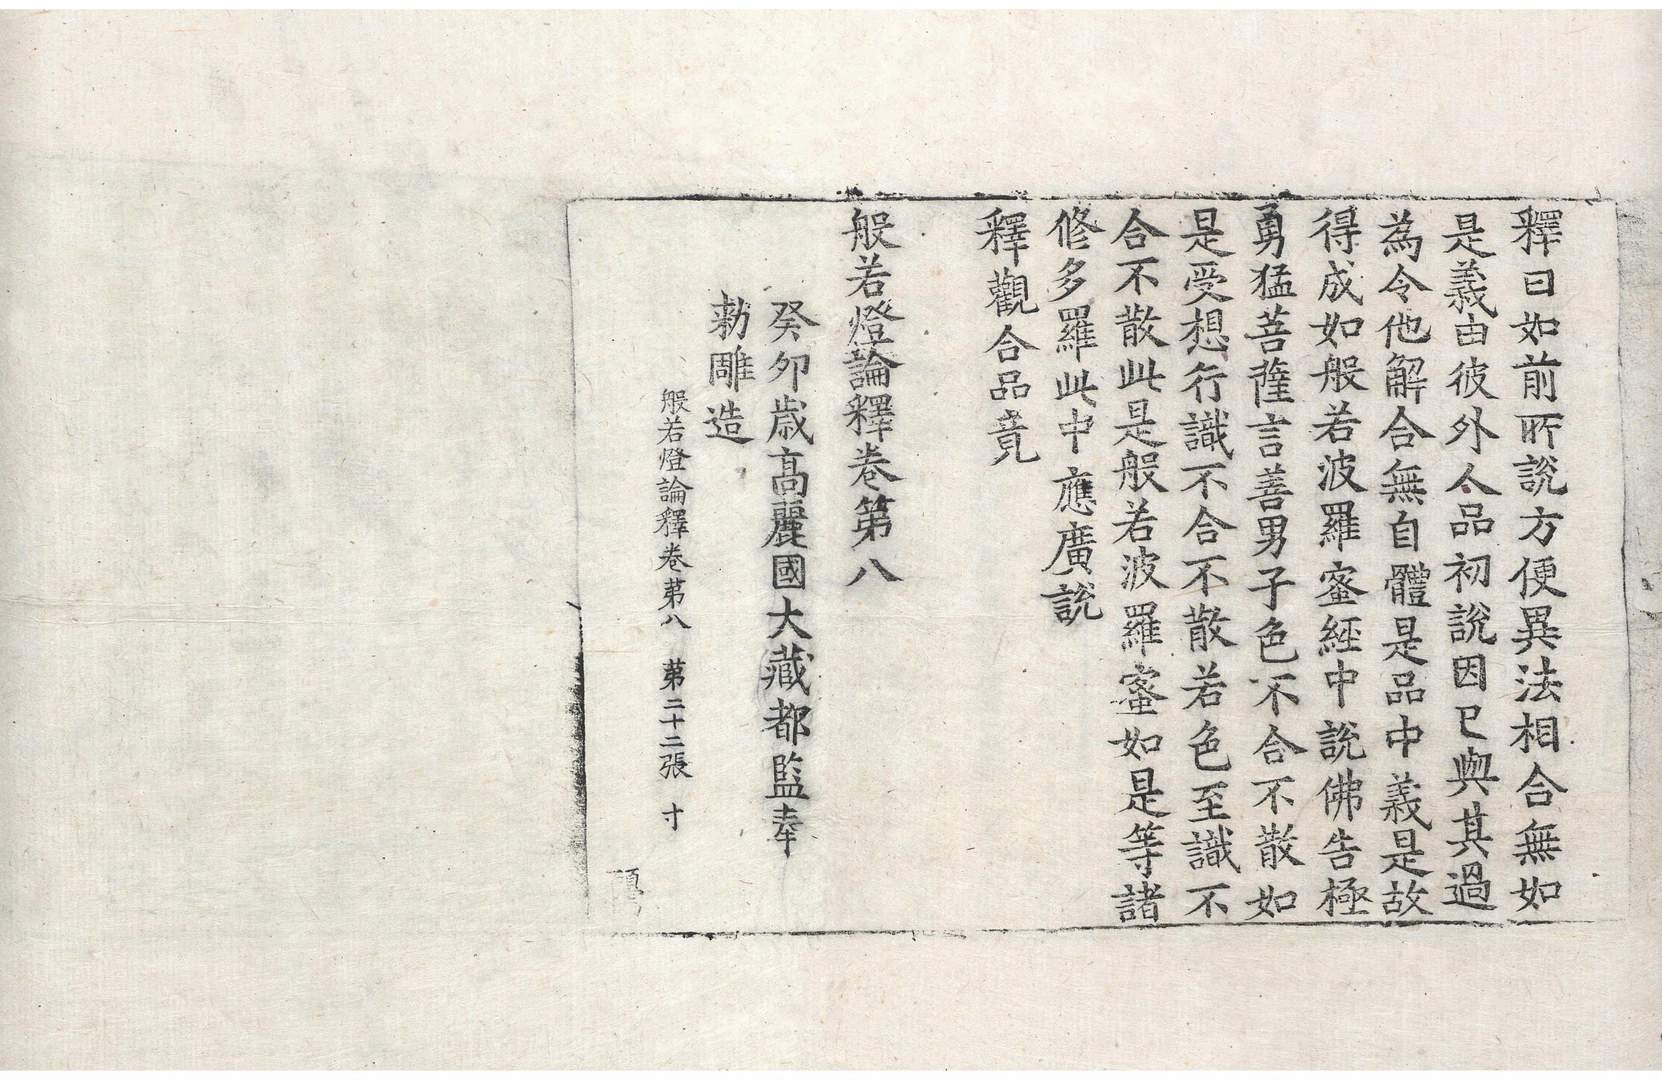 釋曰如前所說方便異法相合無如
是義由彼外人品初說因已與其過
為令他解合無自體是品中義是故
得成如般若波羅蜜經中說佛告極
勇猛菩薩言善男子色不合不散如
是受想行識不合不散若色至識不
合不散此是般若波羅蜜如是等諸
修多羅此中應廣說
釋觀合品竟
般若燈論釋卷第八
癸卯歲高麗國大藏都監奉
勅雕造
般若燈論釋卷第八 第二十二張 寸